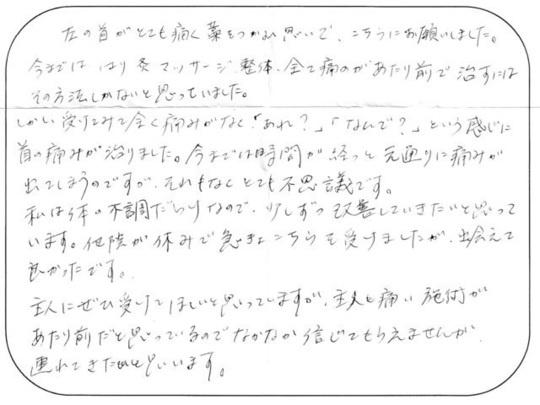 左の首がとても痛く藁をつかむ思いで、こちらにお願いしました。
今までは はり 灸 マッサージ 整体、全て痛のがあたり前で 治すには
その方法しかないと思っていました。
しかし受けてみて全く痛みがなく「あれ？」「なんで？」という感じに
首の痛みが治りました。今までは時間が経つと元通りに痛みが
出てしまうのですが、それもなくとても不思議です。
私は体の不調だらけなので、少しずつ改善していきたいと思って
います。他院が休みで急きょこちらを受けましたが、出会えて
良かったです。
主人にぜひ受けてほしいと思っていますが、主人も痛い施術が
あたり前だと思っているのでなかなか信じてもらえませんが、
連れてきたいと思います。